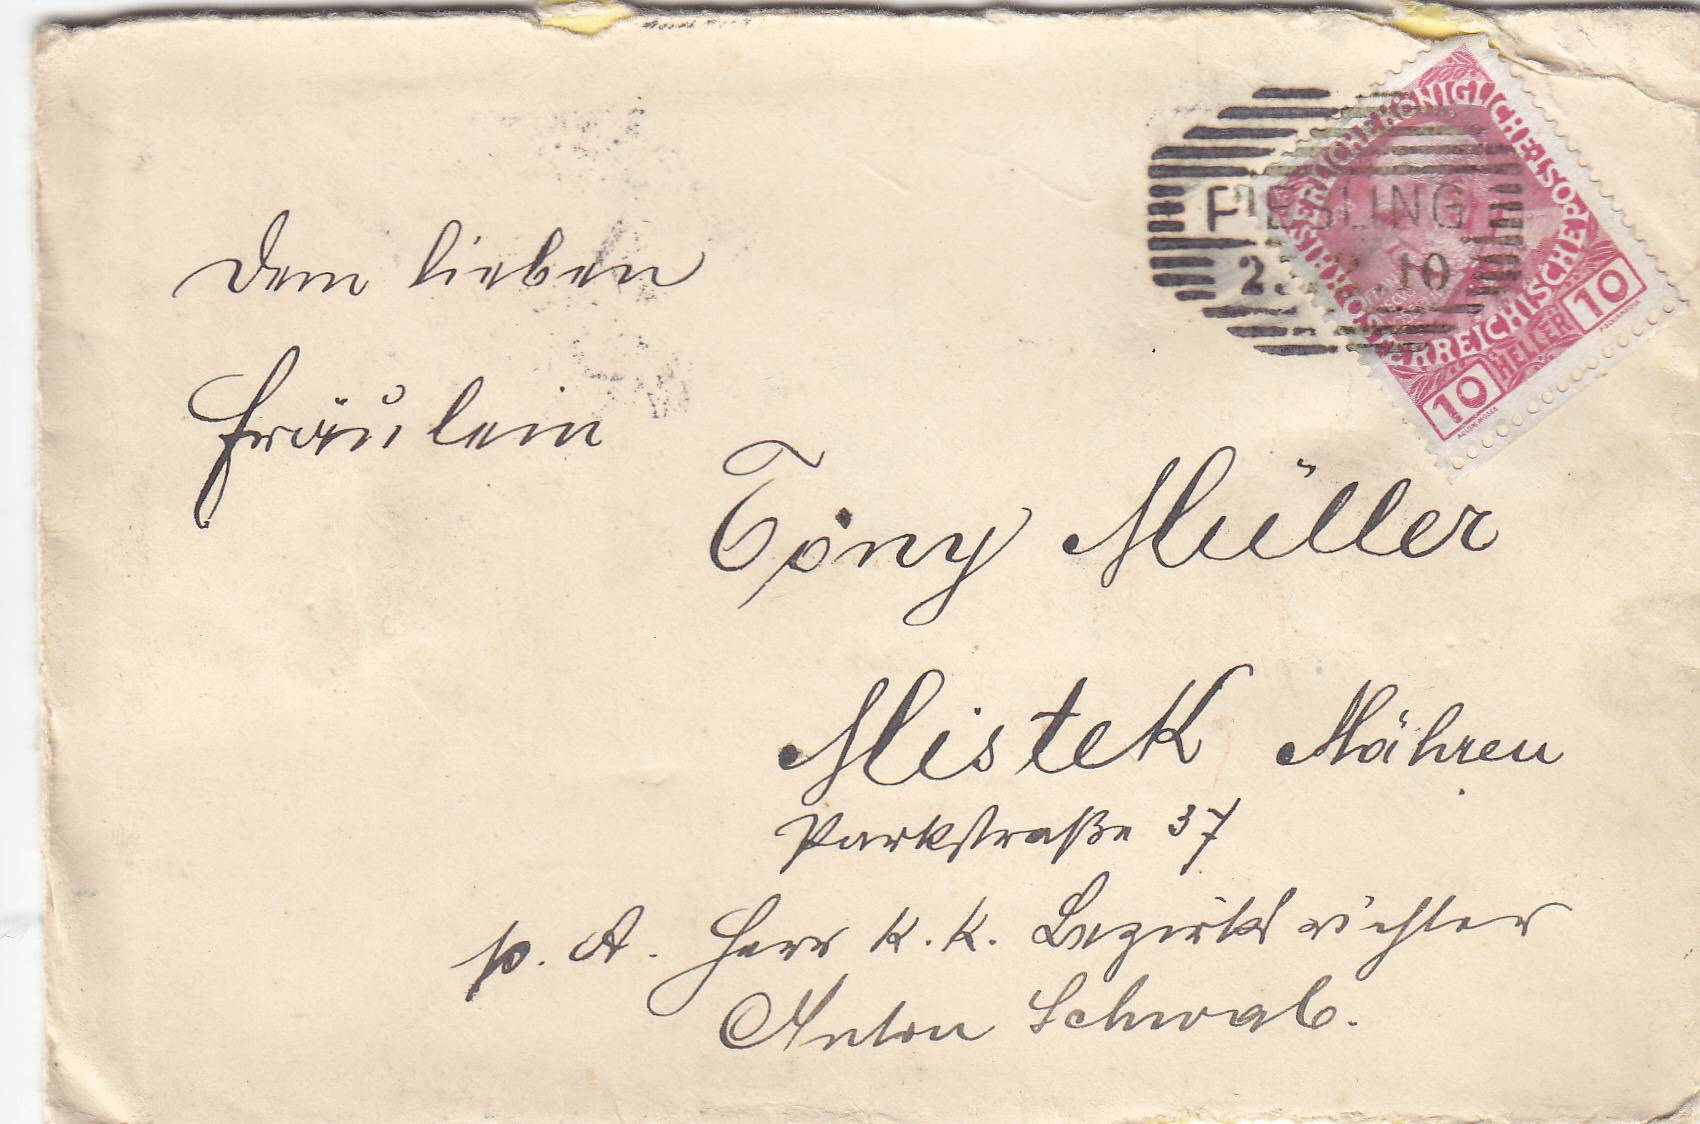 KAISERLICHE KÖNIGLICHE
ÖSTERREICHISCHE POST
10 HELLER 10
PIESLING
10
Dem lieben
Fräulein
Tony Müller
Mistek Mähren
Parkstraße 37
p. A. Herr K. K. Bezirksrichter
Anton Schwab.